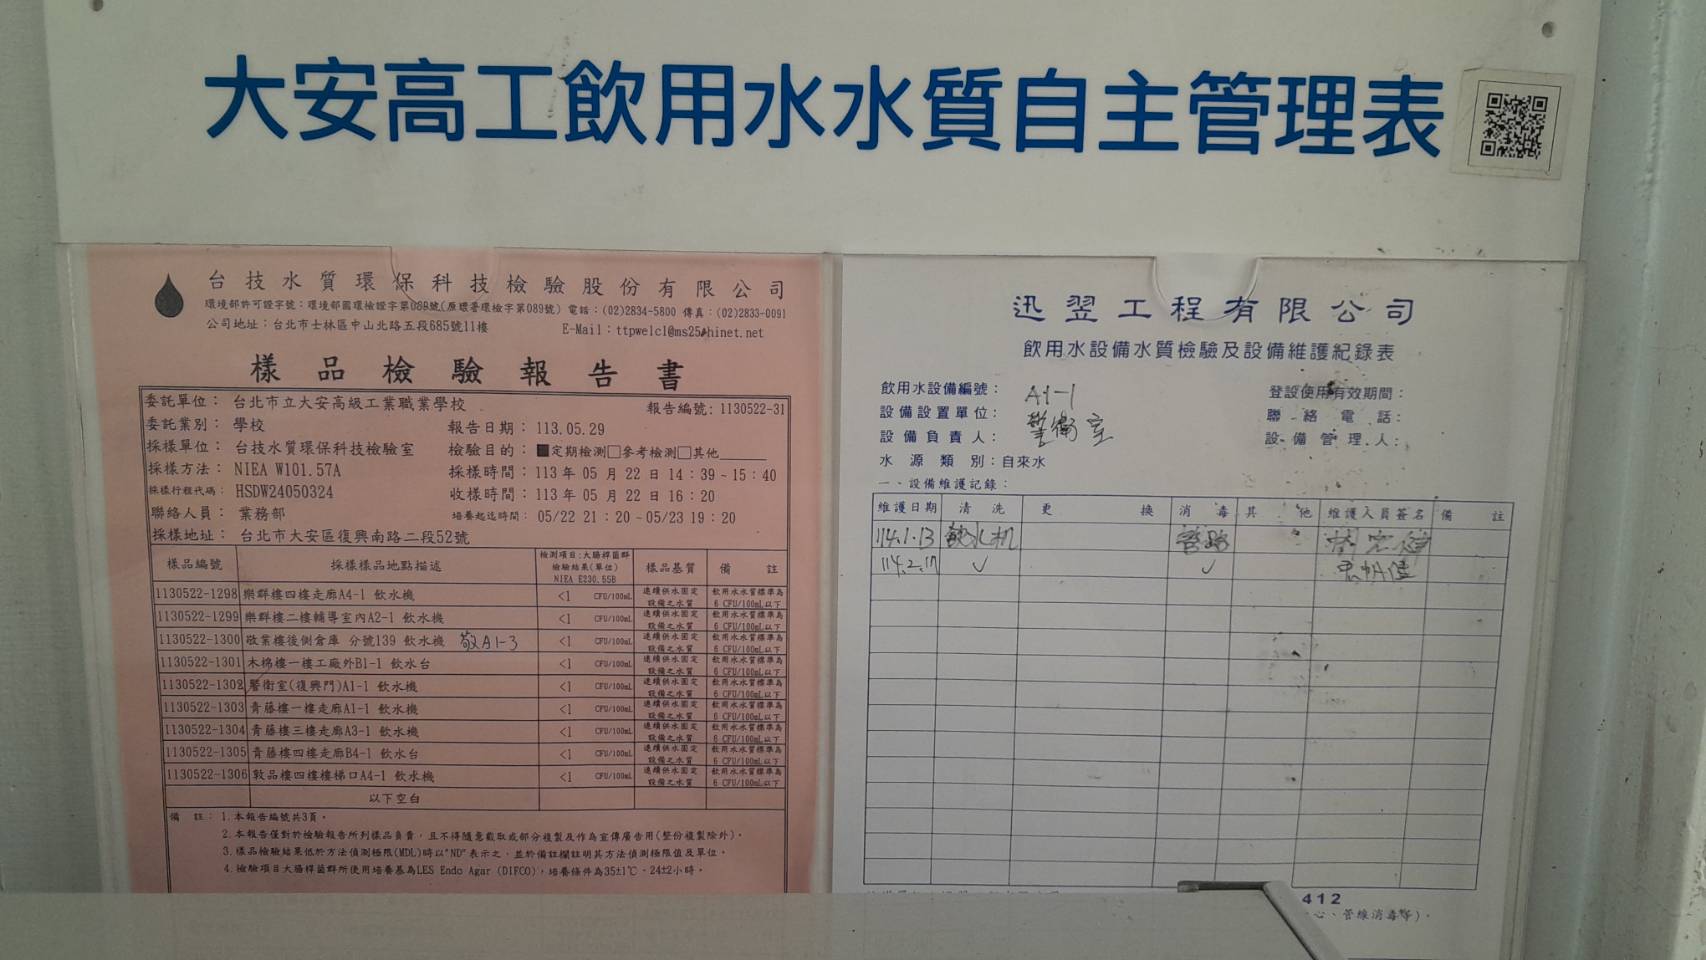 大安高工飲用水水質自主管理表
台技水質環保科技檢驗股份有限公司
環境部許可證字號：環境部國環檢證字第089號(原環署環檢字第089號) 電話：(02)2834-5800 傳真：(02)2833-0091
公司地址：台北市士林區中山北路五段685號11樓 E-Mail：ttpwelcl@ms25.hinet.net
樣品檢驗報告書
委託單位： 台北市立大安高級工業職業學校 報告編號：1130522-31
委託業別： 學校 報告日期：113.05.29
採樣單位： 台技水質環保科技檢驗室 檢驗目的：■定期檢測□參考檢測□其他
採樣方法： NIEA W101.57A 採樣時間：113 年 05 月 22 日 14：39～15：40
採樣行程代碼： HSDW24050324 收樣時間：113 年 05 月 22 日 16：20
聯絡人員： 業務部 培養起迄時間： 05/22 21：20～05/23 19：20
採樣地址： 台北市大安區復興南路二段52號
樣品編號 採樣樣品地點描述 檢測項目:大腸桿菌群 檢驗結果(單位) NIEA E230.55B 樣品基質 備註
1130522-1298 樂群樓四樓走廊A4-1 飲水機 <1 CFU/100mL 連續供水固定設備之水質 飲用水水質標準為6 CFU/100mL以下
1130522-1299 樂群樓二樓輔導室內A2-1 飲水機 <1 CFU/100mL 連續供水固定設備之水質 飲用水水質標準為6 CFU/100mL以下
1130522-1300 敬業樓後側倉庫 分號139 飲水機 敬A1-3 <1 CFU/100mL 連續供水固定設備之水質 飲用水水質標準為6 CFU/100mL以下
1130522-1301 木棉樓一樓工廠外B1-1 飲水台 <1 CFU/100mL 連續供水固定設備之水質 飲用水水質標準為6 CFU/100mL以下
1130522-1302 警衛室(復興門)A1-1 飲水機 <1 CFU/100mL 連續供水固定設備之水質 飲用水水質標準為6 CFU/100mL以下
1130522-1303 青藤樓一樓走廊A1-1 飲水機 <1 CFU/100mL 連續供水固定設備之水質 飲用水水質標準為6 CFU/100mL以下
1130522-1304 青藤樓三樓走廊A3-1 飲水機 <1 CFU/100mL 連續供水固定設備之水質 飲用水水質標準為6 CFU/100mL以下
1130522-1305 青藤樓四樓走廊B4-1 飲水台 <1 CFU/100mL 連續供水固定設備之水質 飲用水水質標準為6 CFU/100mL以下
1130522-1306 敦品樓四樓樓梯口A4-1 飲水機 <1 CFU/100mL 連續供水固定設備之水質 飲用水水質標準為6 CFU/100mL以下
以下空白
備 註：1.本報告編號共3頁。
2.本報告僅對於檢驗報告所列樣品負責，且不得隨意截取或部分複製及作為宣傳廣告用(整份複製除外)。
3.樣品檢驗結果低於方法偵測極限(MDL)時以"ND"表示之，並於備註欄註明其方法偵測極限值及單位。
4.檢驗項目大腸桿菌群所使用培養基為LES Endo Agar (DIFCO)，培養條件為35±1℃、24±2小時。
迅翌工程有限公司
飲用水設備水質檢驗及設備維護紀錄表
飲用水設備編號： A1-1 登設使用有效期間：
設備設置單位： 警衛室 聯絡電話：
設備負責人： 設備管理人：
水源類別：自來水
一、設備維護記錄：
維護日期 清洗 更換 消毒 其他 維護人員簽名 備註
114.1.13 飲水机 管路
114.2.17 ✓ ✓
412
心、管線消毒等)。